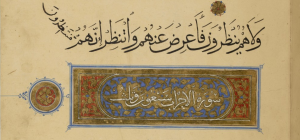 وَلَا هُمْ يُنظَرُونَ فَأَعْرِضْ عَنْهُمْ وَانتَظِرْ إِنَّهُم مُّنتَظِرُونَ
سورة الاحزاب سبعون